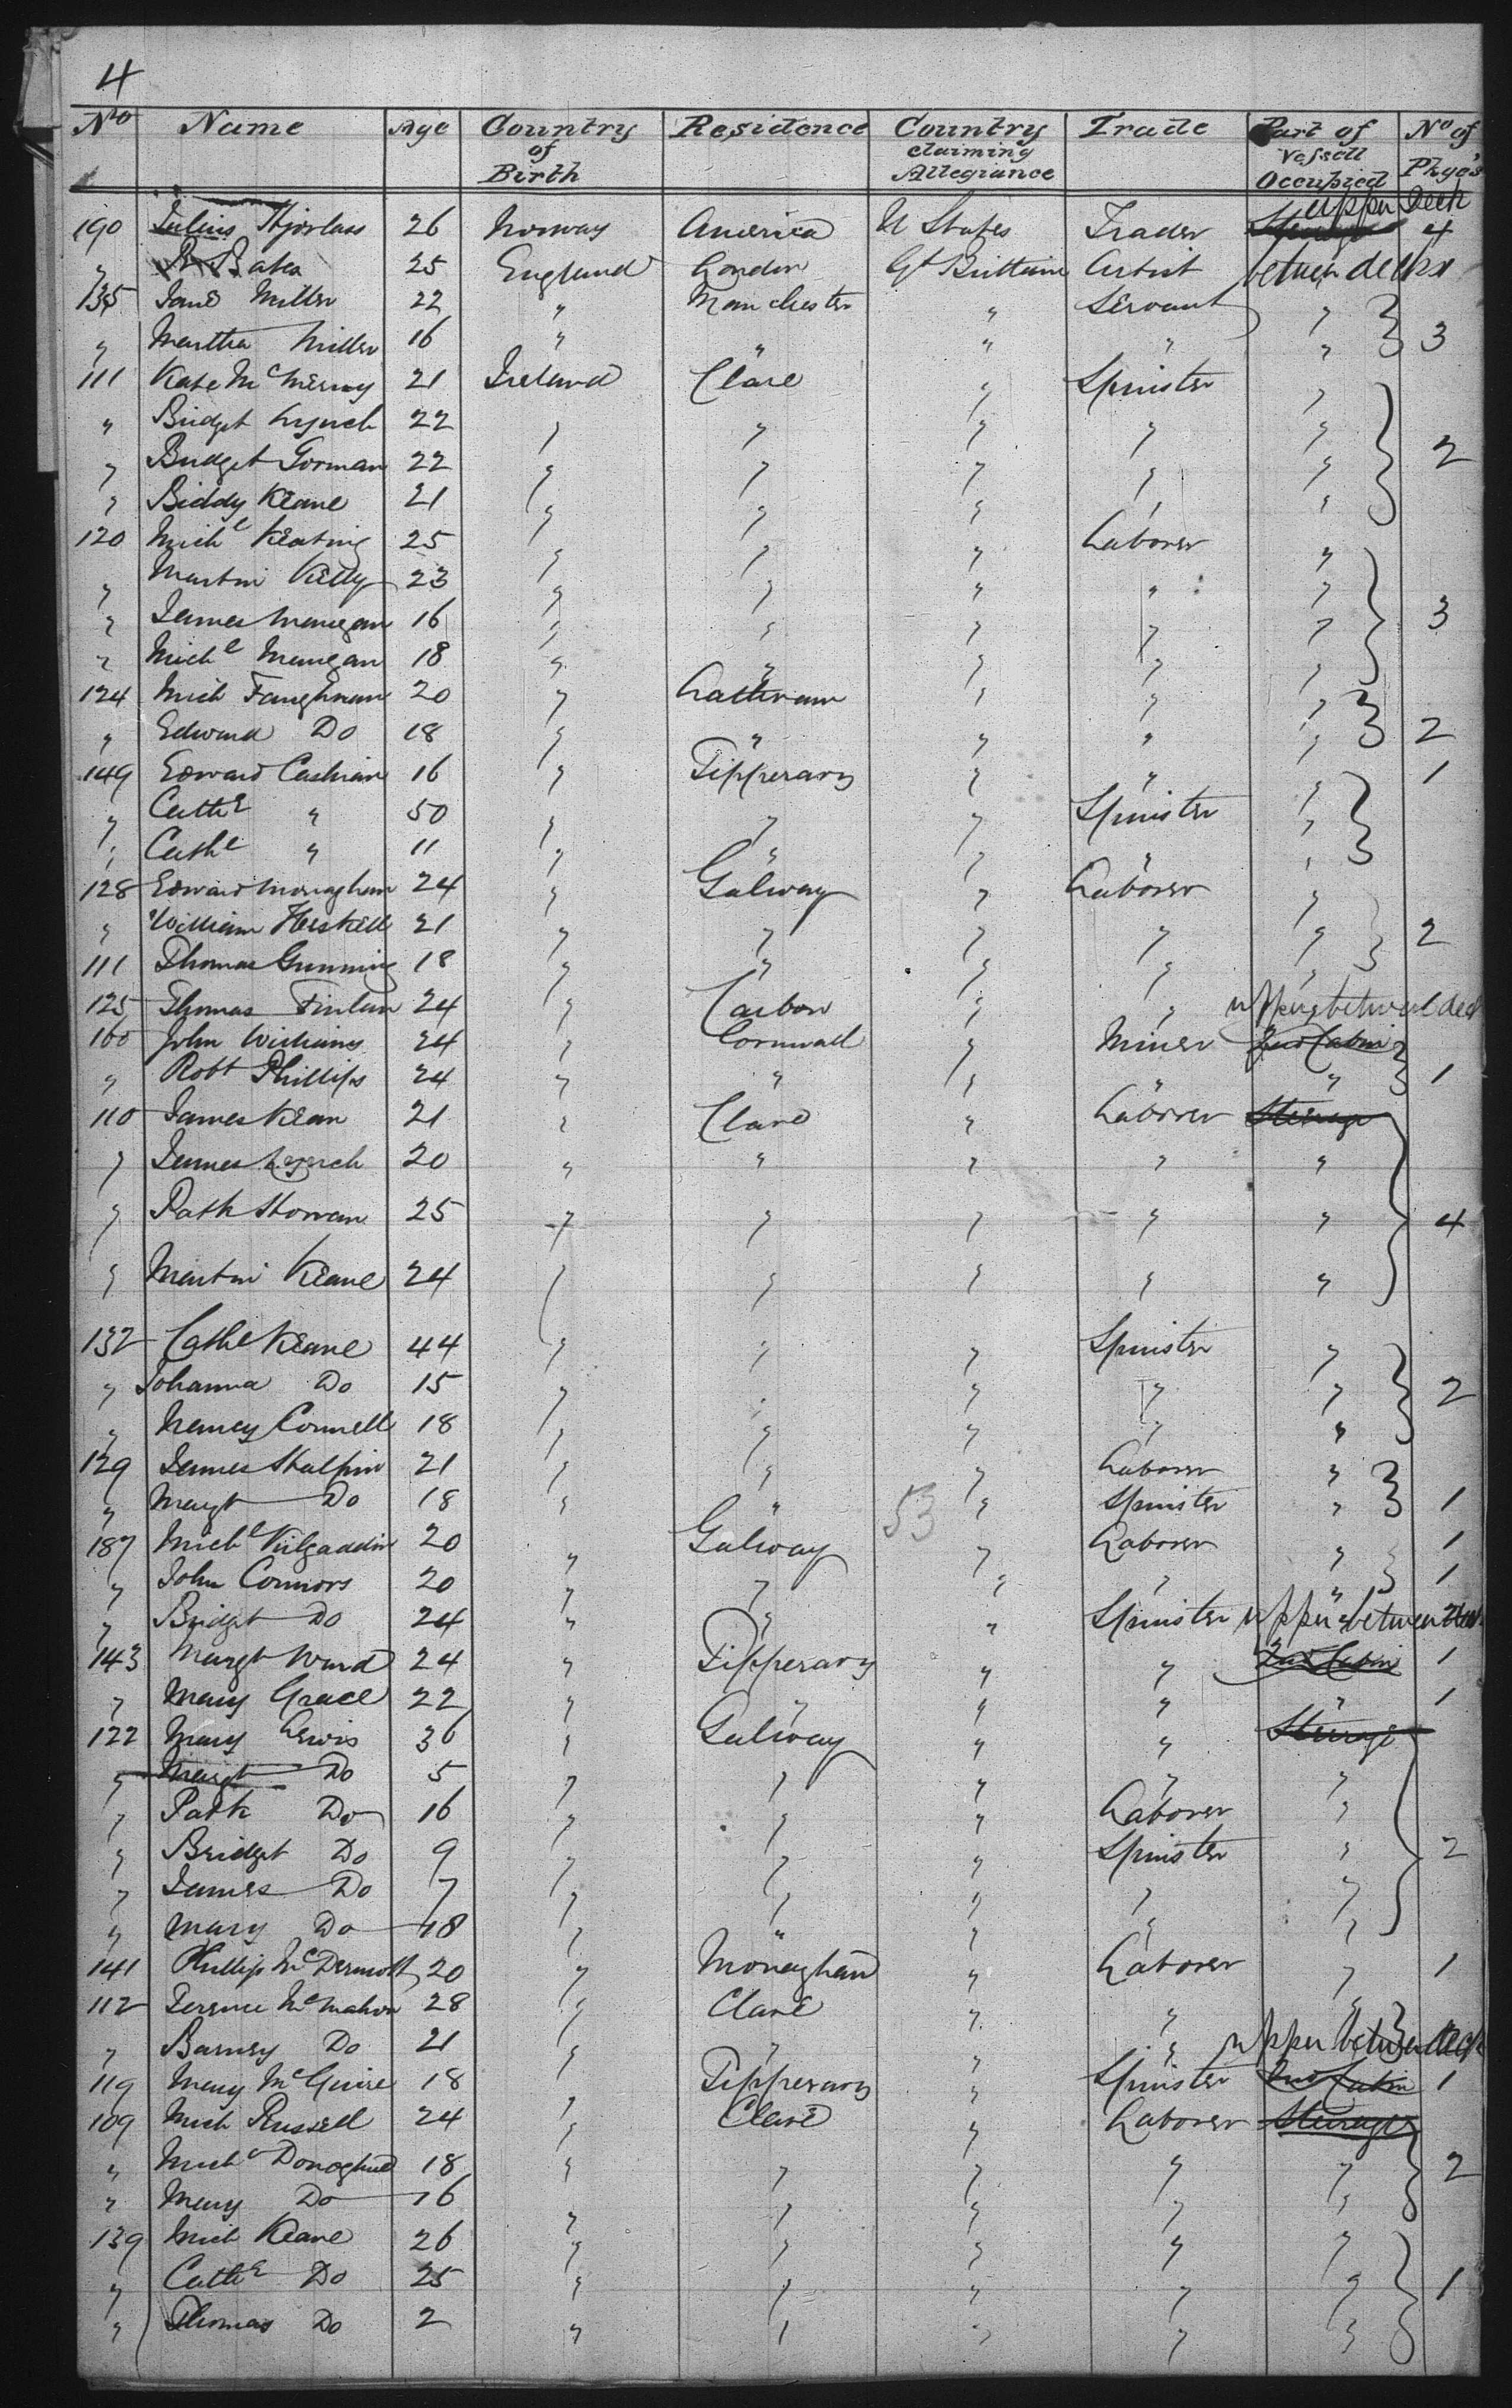 4
No Name Age Country of Birth Residence Country claiming Allegiance Trade Part of Vessell Occupied No of Pkge's
190 Julius 26 Norway America U States Trader Steerage upper Deck 4
" Bates 25 England London Gt Brittain Artist between decks
135 Jane Miller 22 " Manchester " Servant "
" Martha Miller 16 " " " " " 3
111 Kate McInerny 21 Ireland Clare " Spinster "
" Bridget Lynch 22 " " " " "
" Bridget Gorman 22 " " " " " 2
" Biddy Keane 21 " " " " "
120 Michl Keating 25 " " " Laborer "
" Martin Kelly 23 " " " " "
" James Manegan 16 " " " " " 3
" Michl Manegan 18 " " " " "
124 Mich Faughnan 20 " Lattram " " "
" Edward Do 18 " " " " " 2
149 Edward Cashian 16 " Tipperary " " " 1
" Cathe " 50 " " " Spinster "
" Cathe " 11 " " " " "
128 Edward Monaghan 24 " Galway " Laborer "
" William Heskell 21 " " " " " 2
111 Thomas Gunning 18 " " " " "
125 Thomas Finlan 24 " Carbow " " upper between deck
160 John Williams 24 " Cornwall " Miner 2nd Cabin
" Robt Phillips 24 " " " " " 1
110 James Kean 21 " Clare " Laborer Steerage
" James Lynch 20 " " " " "
" Patk 25 " " " " " 4
" Martin Keane 24 " " " " "
132 Cathe Keane 44 " " " Spinster "
" Johanna Do 15 " " " " " 2
" Nancy Connell 18 " " " " "
129 James Halpin 21 " " " Laborer "
" Margt Do 18 " " 53 " Spinster " 1
187 Michl Kilgaddin 20 " Galway " Laborer " 1
" John Connors 20 " " " " " 1
" Bridget Do 24 " " " Spinster upper between deck
143 Margt Ward 24 " Tipperary " " 2nd Cabin 1
" Mary Grace 22 " " " " " 1
122 Mary Lewis 36 " Galway " " Steerage
" Margt Do 5 " " " " "
" Patk Do 16 " " " Laborer "
" Bridget Do 9 " " " Spinster " 2
" James Do 7 " " " " "
" Mary Do 18 " " " " "
141 Phillip McDermott 20 " Monaghan " Laborer " 1
112 Terence McMahon 28 " Clare " " "
" Barney Do 21 " " " " upper between deck
119 Mary McGuire 18 " Tipperary " Spinster 2nd Cabin 1
109 Mich Russell 24 " Clare " Laborer Steerage
" Michl Donoghue 18 " " " " " 2
" Mary Do 16 " " " " "
139 Mich Keane 26 " " " " "
" Cathe Do 25 " " " " " 1
" Thomas Do 2 " " " " "